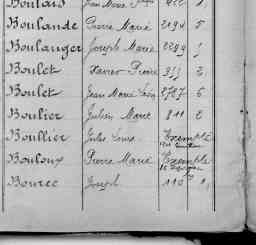 Boulais Jean Marie
Boulande Pierre Marie 2194 5
Boulanger Joseph Marie 2299
Boulet Xavier Pierre 355 2
Boulet Jean Marie 2787 5
Boulier Julien Marie 811 2
Boullier Jules Louis Exempté
Bouloux Pierre Marie Exempté
Bourec Joseph 110